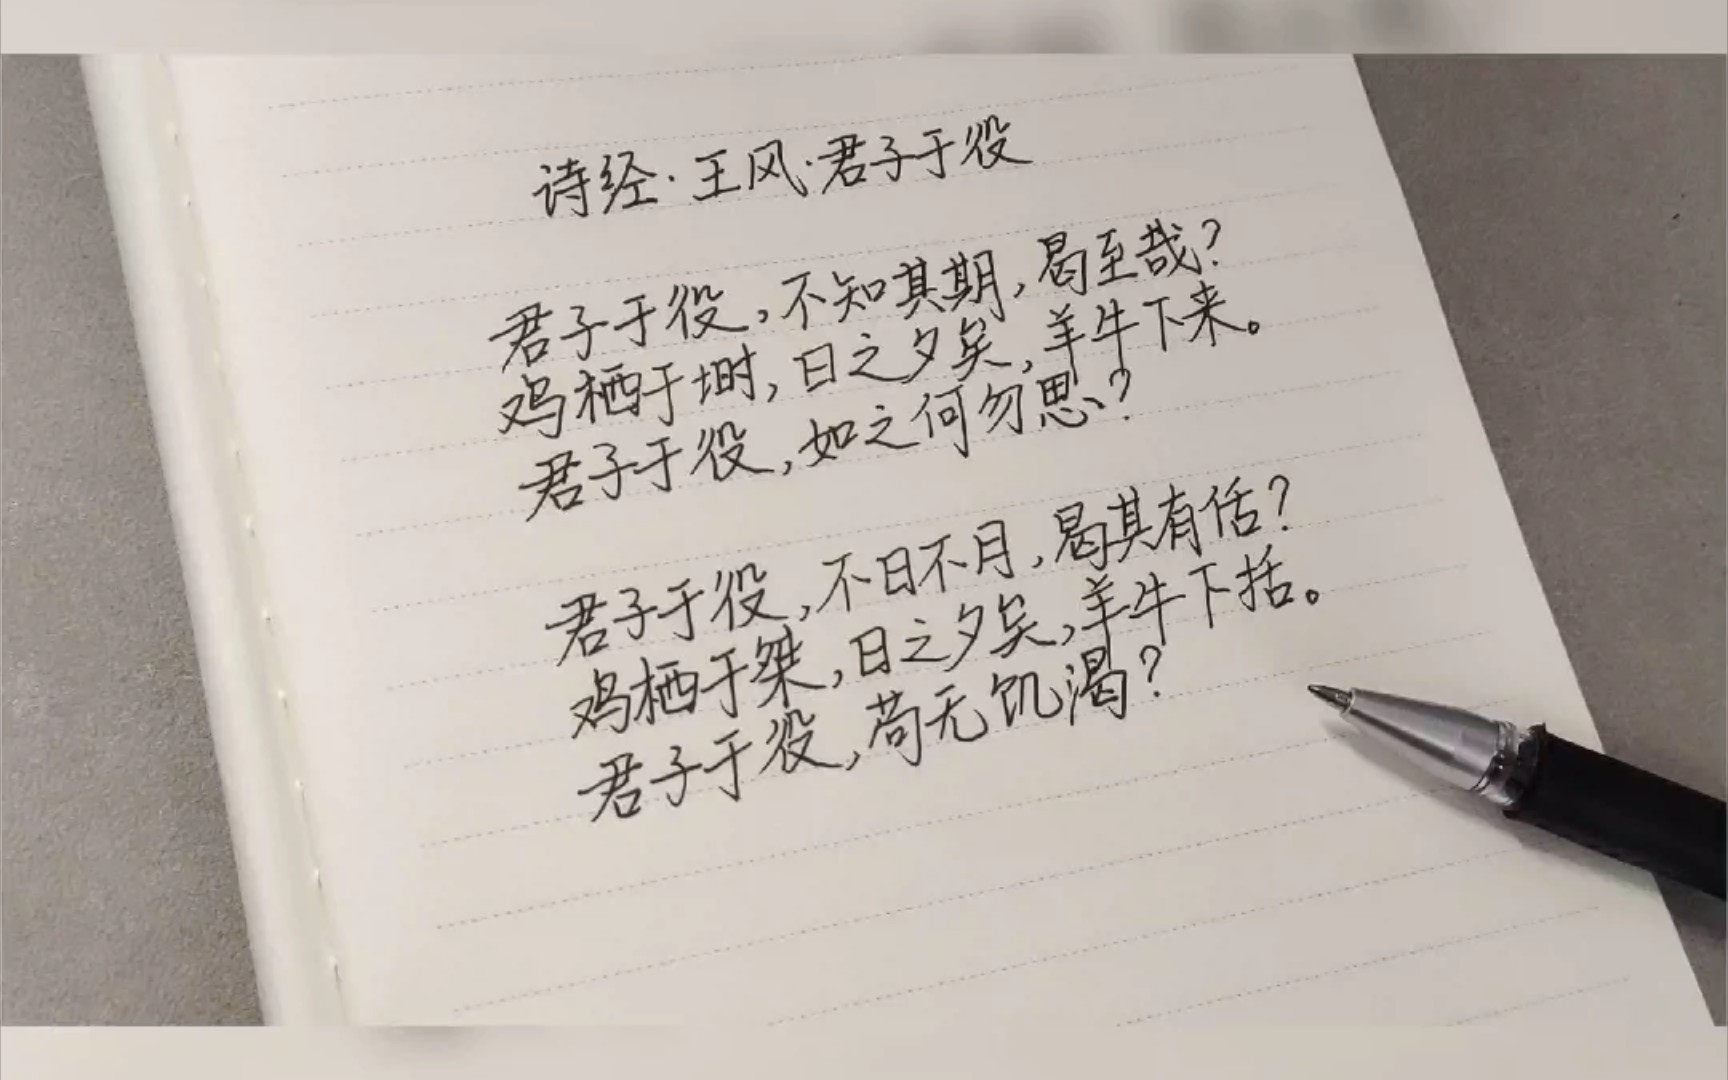 诗经·王风·君子于役
君子于役,不知其期,曷至哉?
鸡栖于埘,日之夕矣,羊牛下来。
君子于役,如之何勿思?
君子于役,不日不月,曷其有佸?
鸡栖于桀,日之夕矣,羊牛下括。
君子于役,苟无饥渴?